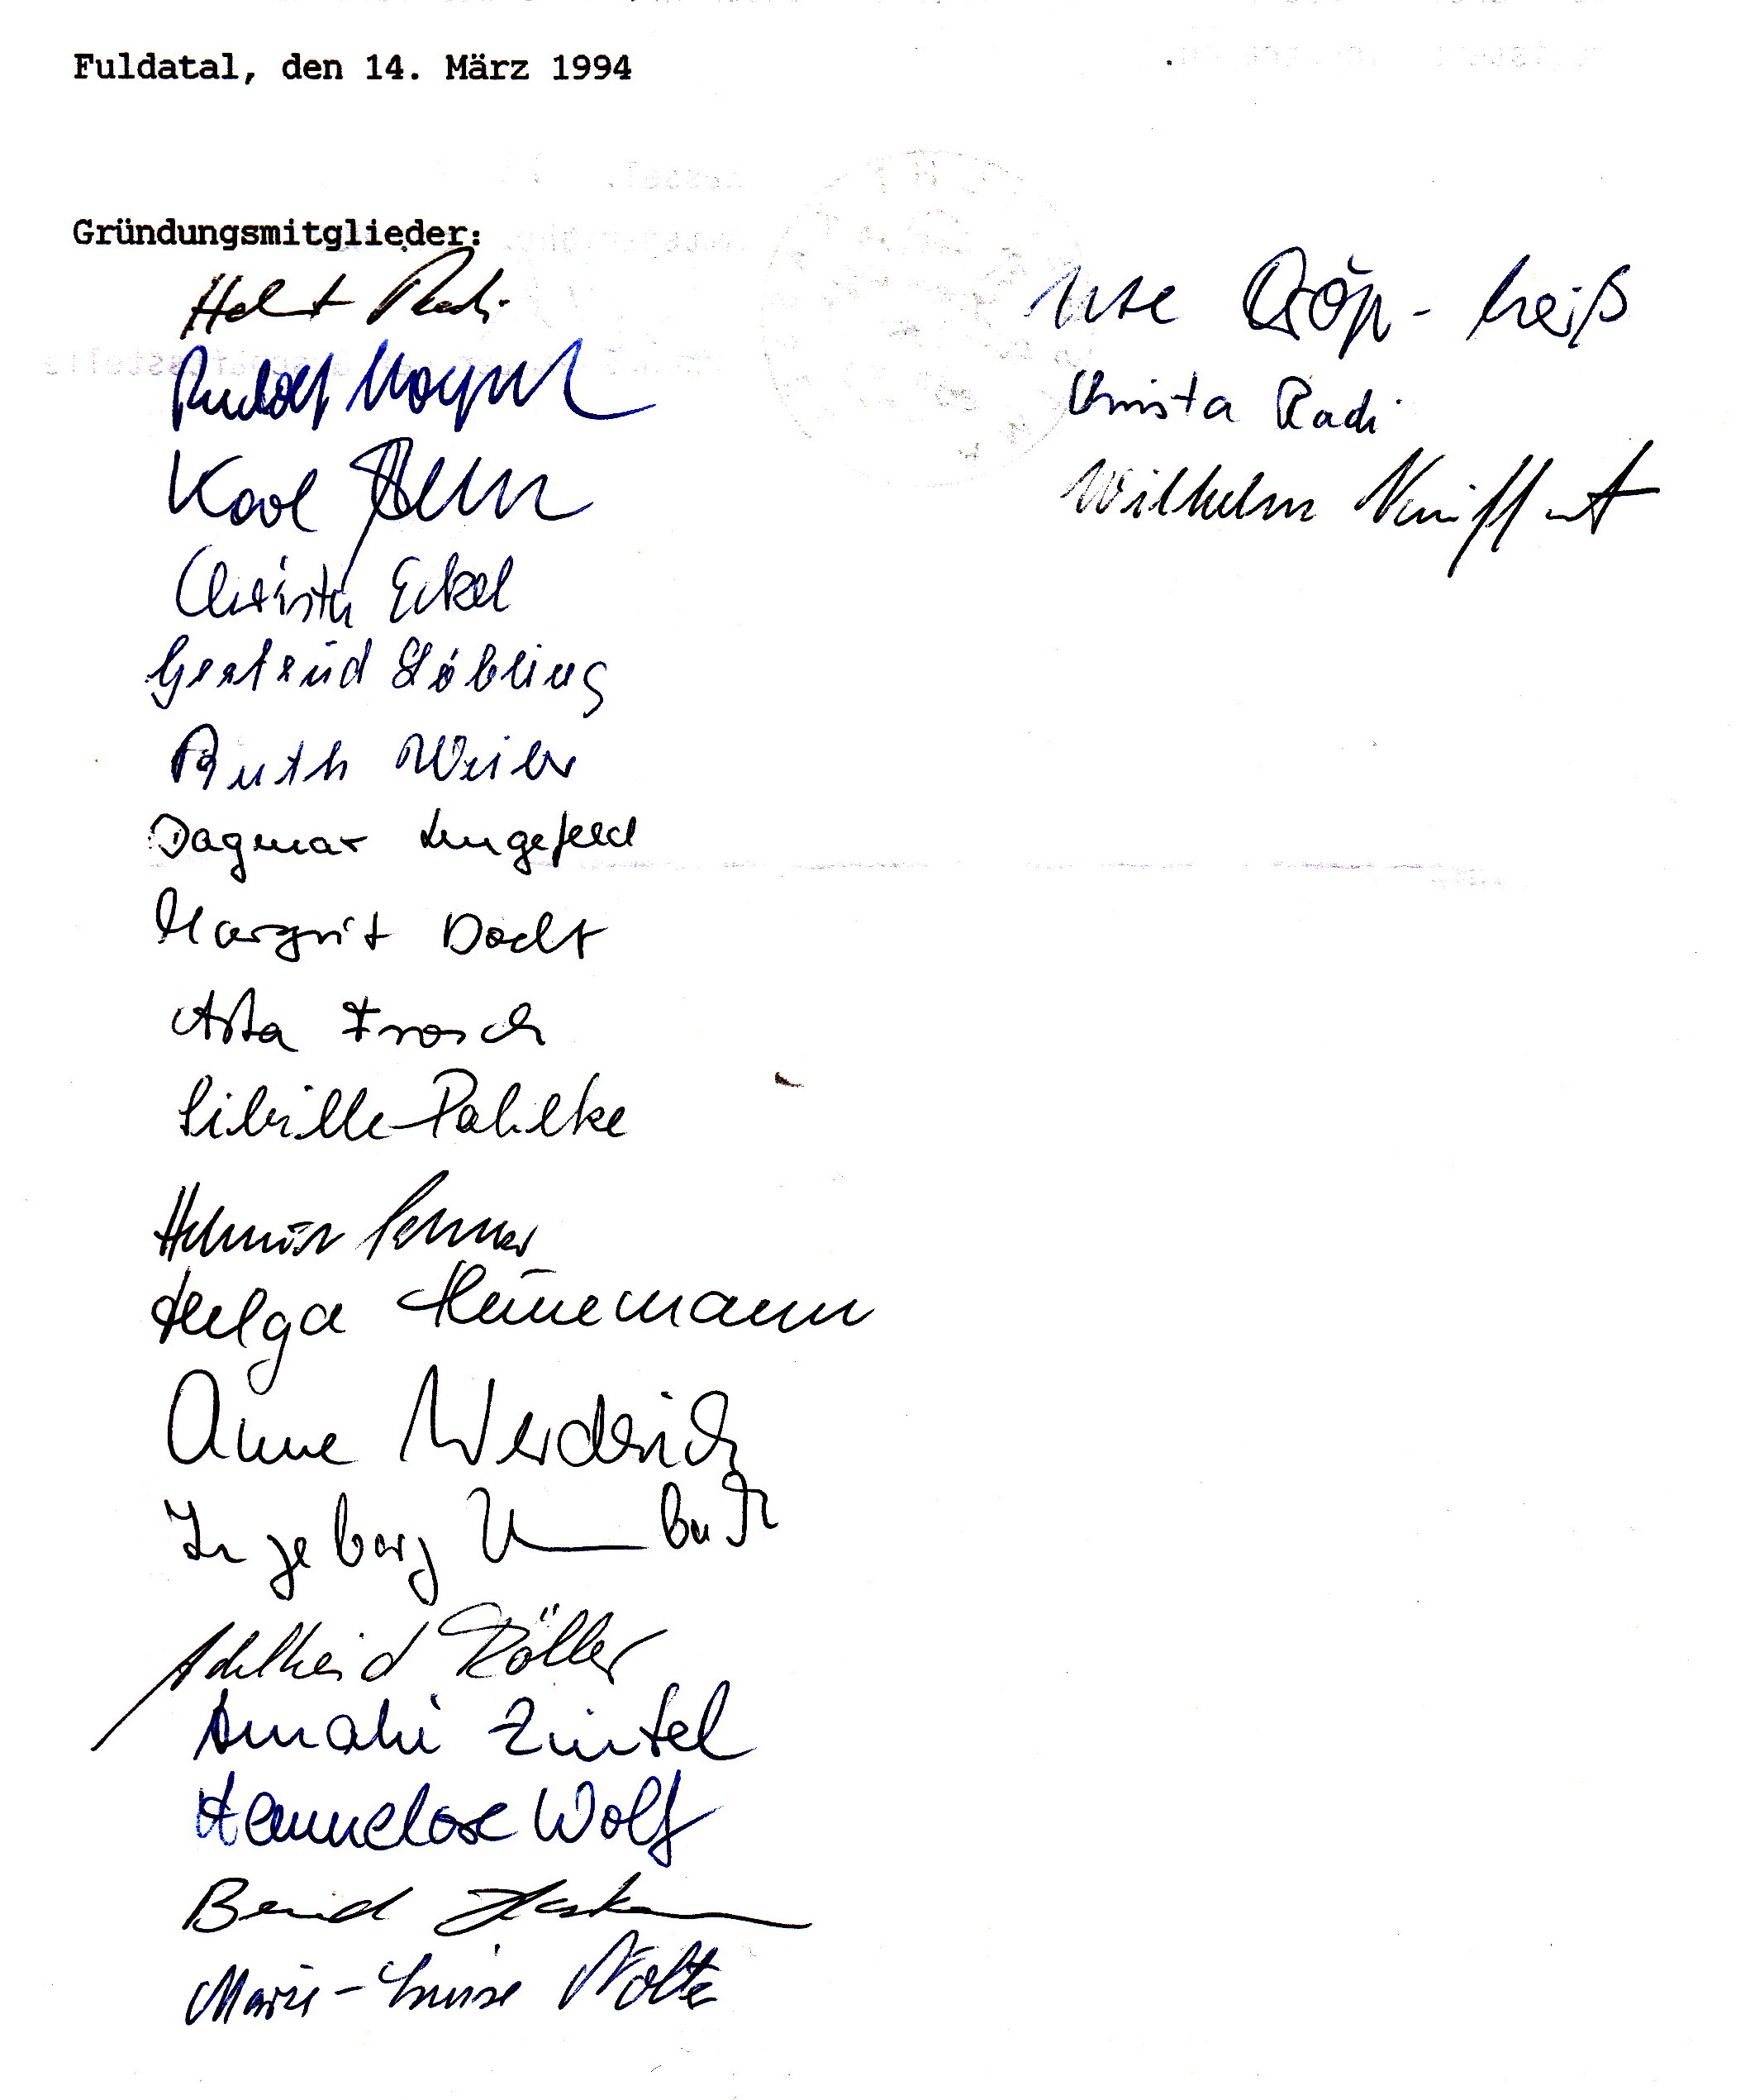 Fuldatal, den 14. März 1994
Gründungsmitglieder:
Helmut Radi
Rudolf
Karl
Christa Eckel
Gertrud Stöbling
Ruth Weiler
Dagmar Lengefeld
Margrit Docht
Asta Frosch
Sibille Pahlke
Helmut
Helga Heinemann
Anne Werderich
Ingeborg Umbach
Adelheid Röller
Amalie Zintel
Hannelore Wolf
Bernd
Marie-Luise Nolte
Ilse Kröp-Weiß
Christa Radi
Wilhelm Kniffert